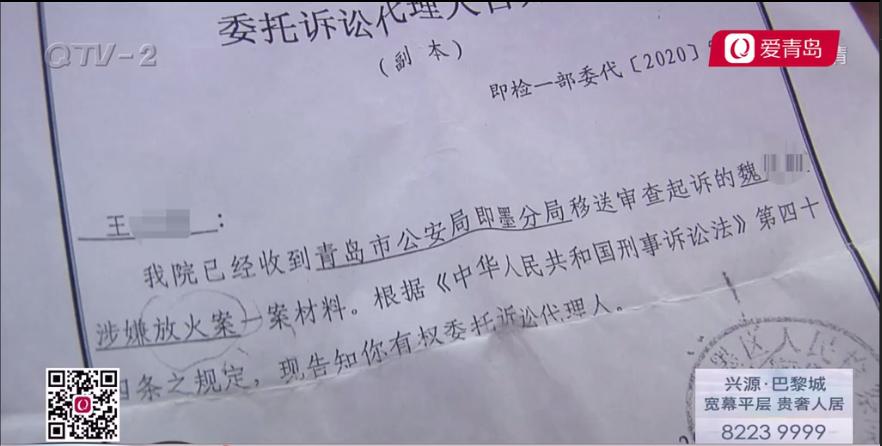 委托诉讼代理人告
(副本)
QTV-2
爱青岛
即检一部委代〔2020〕
王 :
我院已经收到青岛市公安局即墨分局移送审查起诉的魏
涉嫌放火案一案材料。根据《中华人民共和国刑事诉讼法》第四十
条之规定，现告知你有权委托诉讼代理人。
区人民检
兴源·巴黎城
宽幕平层 贵奢人居
8223 9999